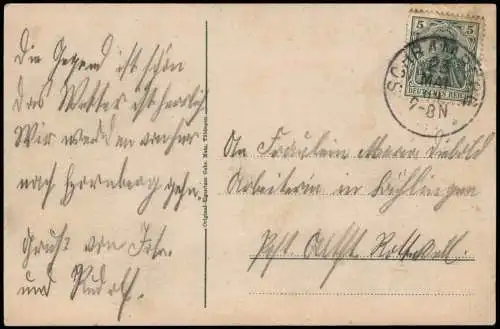 Die Gegend ist schön
das Wetter ist herrlich
Wir werden von hier
nach Hornberg gehn.
Gruß von
und Rudolf.
Original-Eigentum Gebr. Metz, Tübingen
5 5
DEUTSCHES REICH
SCHRAMBERG
MAI
7-8N
An Fräulein Maria
Arbeiterin in Bühlingen
Post Rottweil.